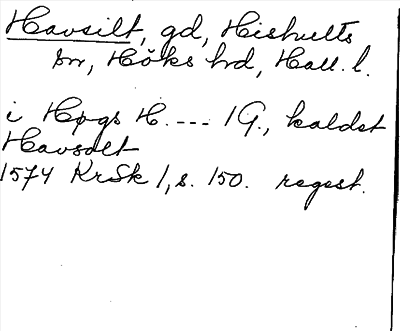 Havsilt, gd, Hishults
sn, Höks hrd, Hall. l.
i Høgs H. --- 1 G., kaldet
Havsolt
1574 KrSk 1, s. 150. regest.